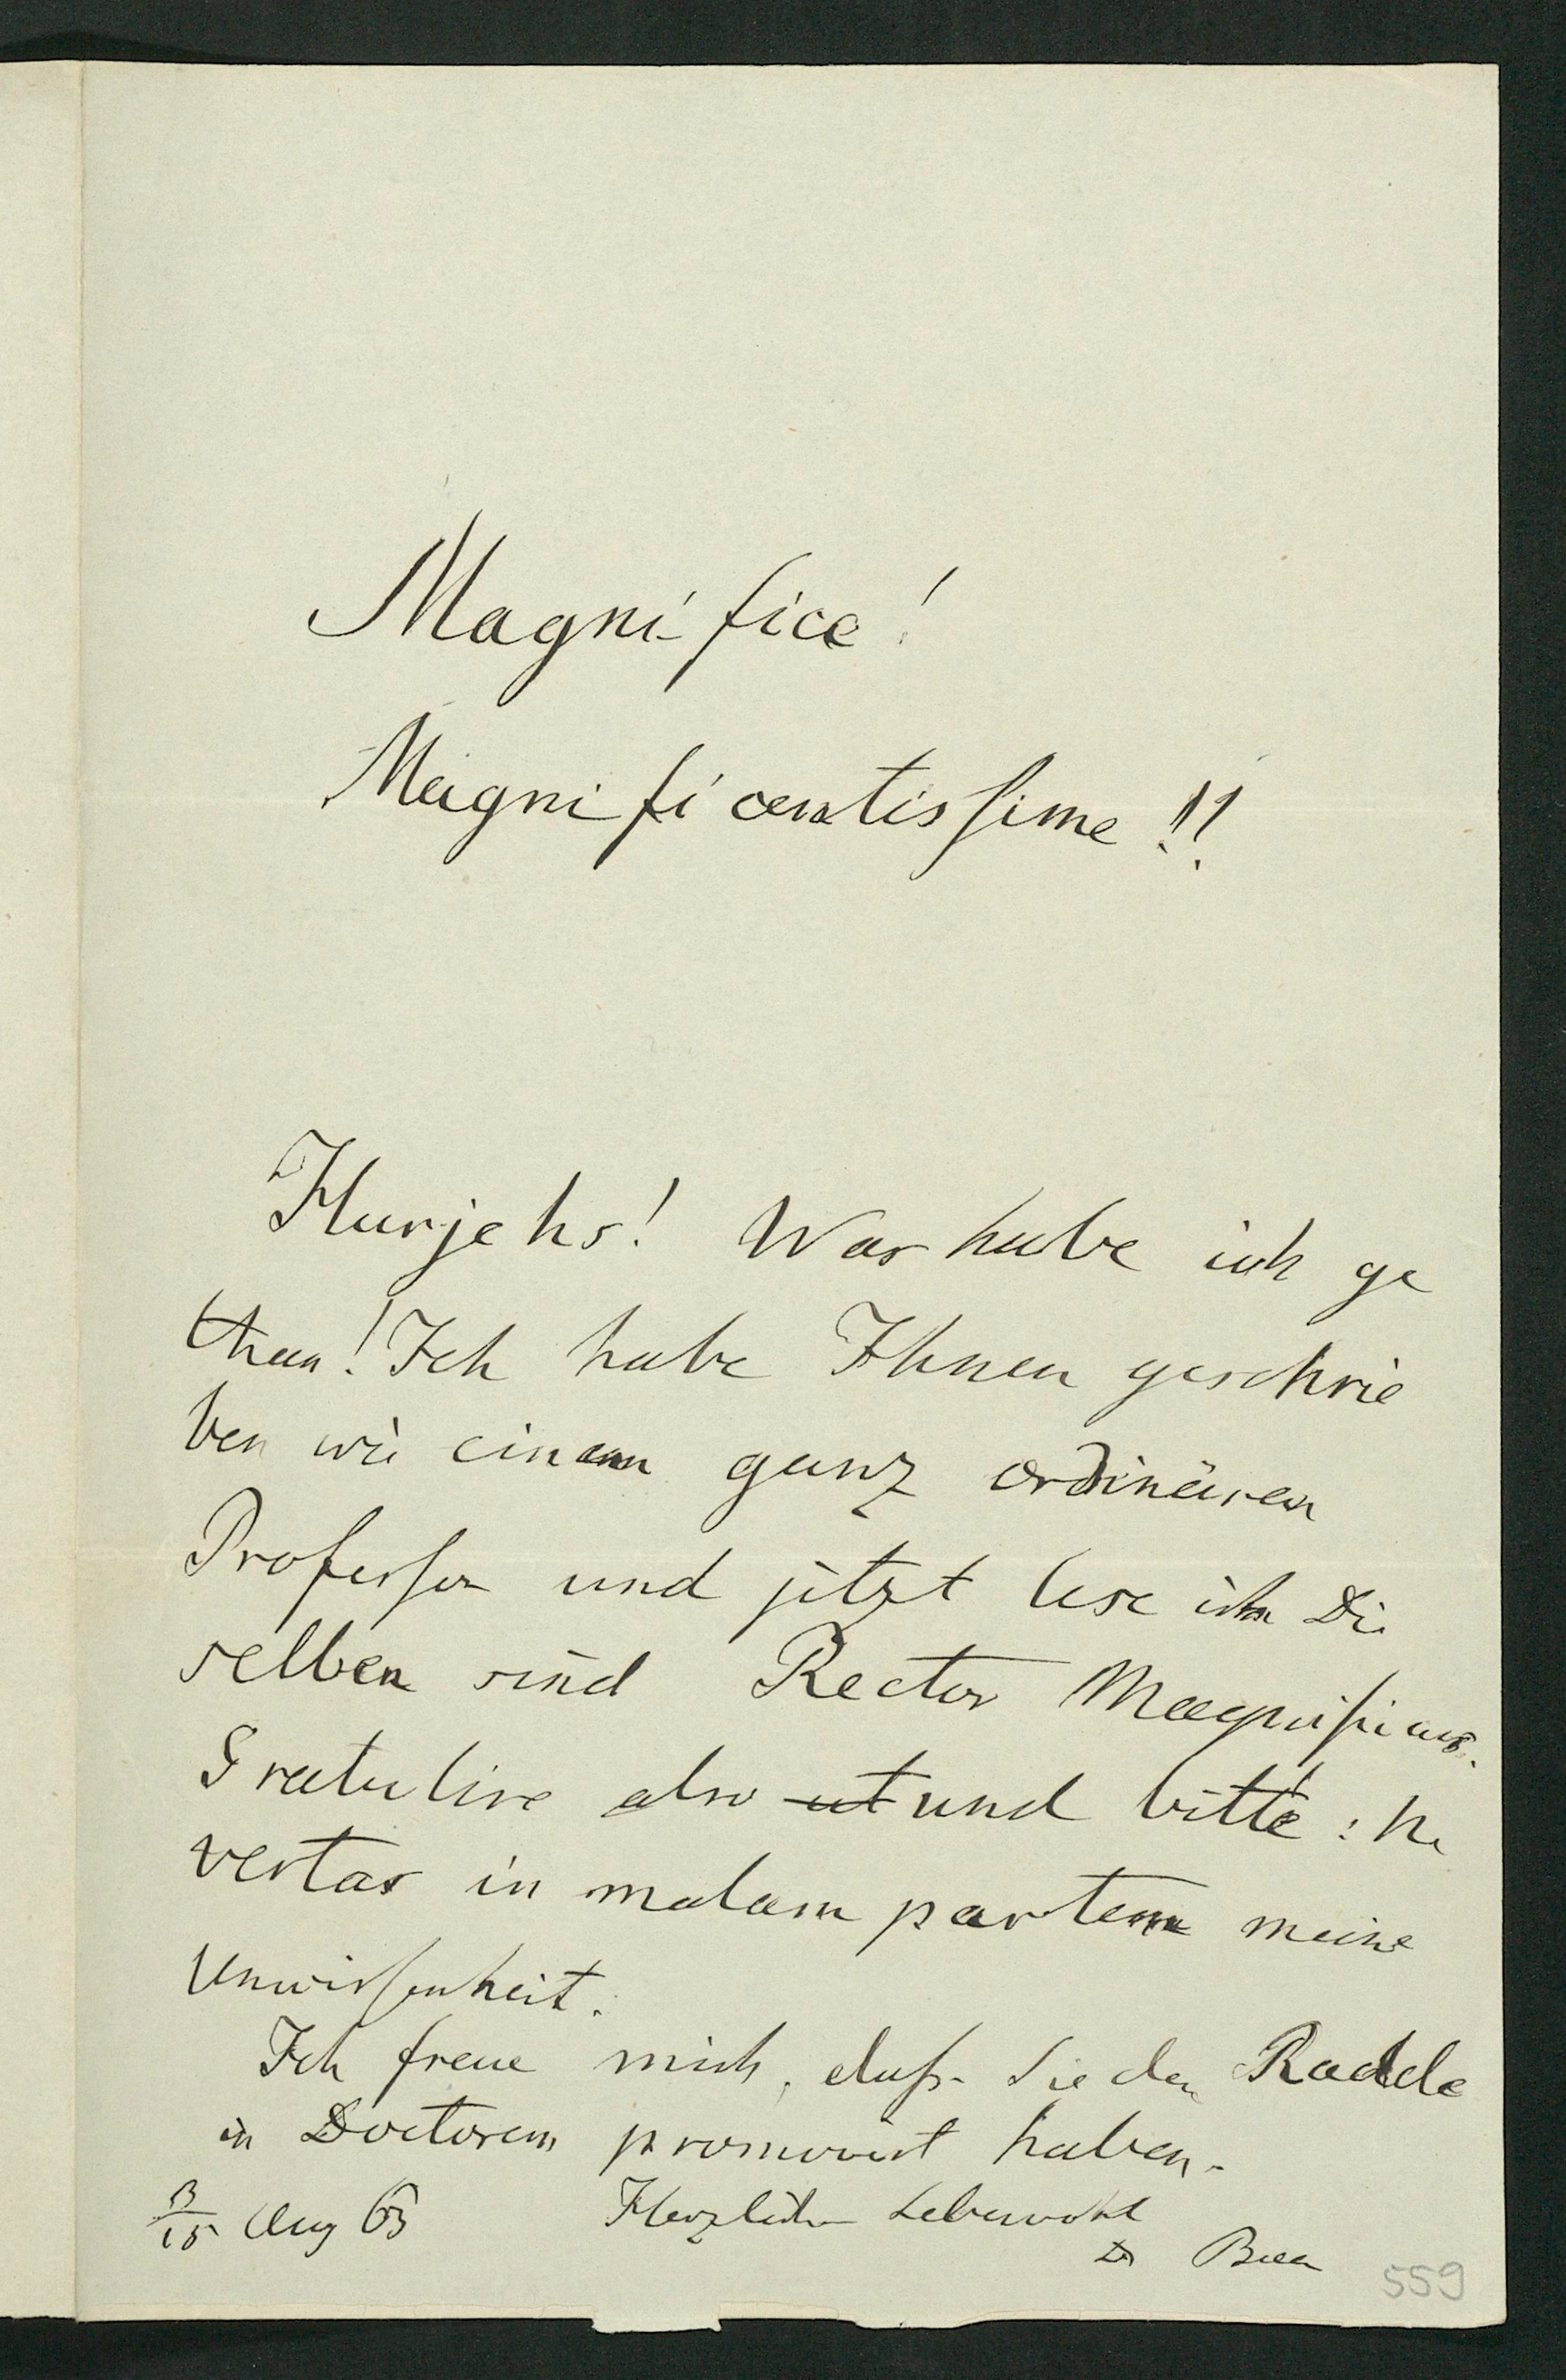 Magnifice!
Magnificentissime!!
Hurjehs! Was habe ich ge
than! Ich habe Ihnen geschrie
ben wie einem ganz ordinären
Professor und jetzt lese ich Die
selben sind Rector Magnificus.
Gratulire also ut und bitte: ne
vertas in malam partem meine
Unwissenheit.
Ich freue mich, daß Sie den Radde
in Doctorem promovirt haben.
Herzliches Lebewohl
Aug 63
559